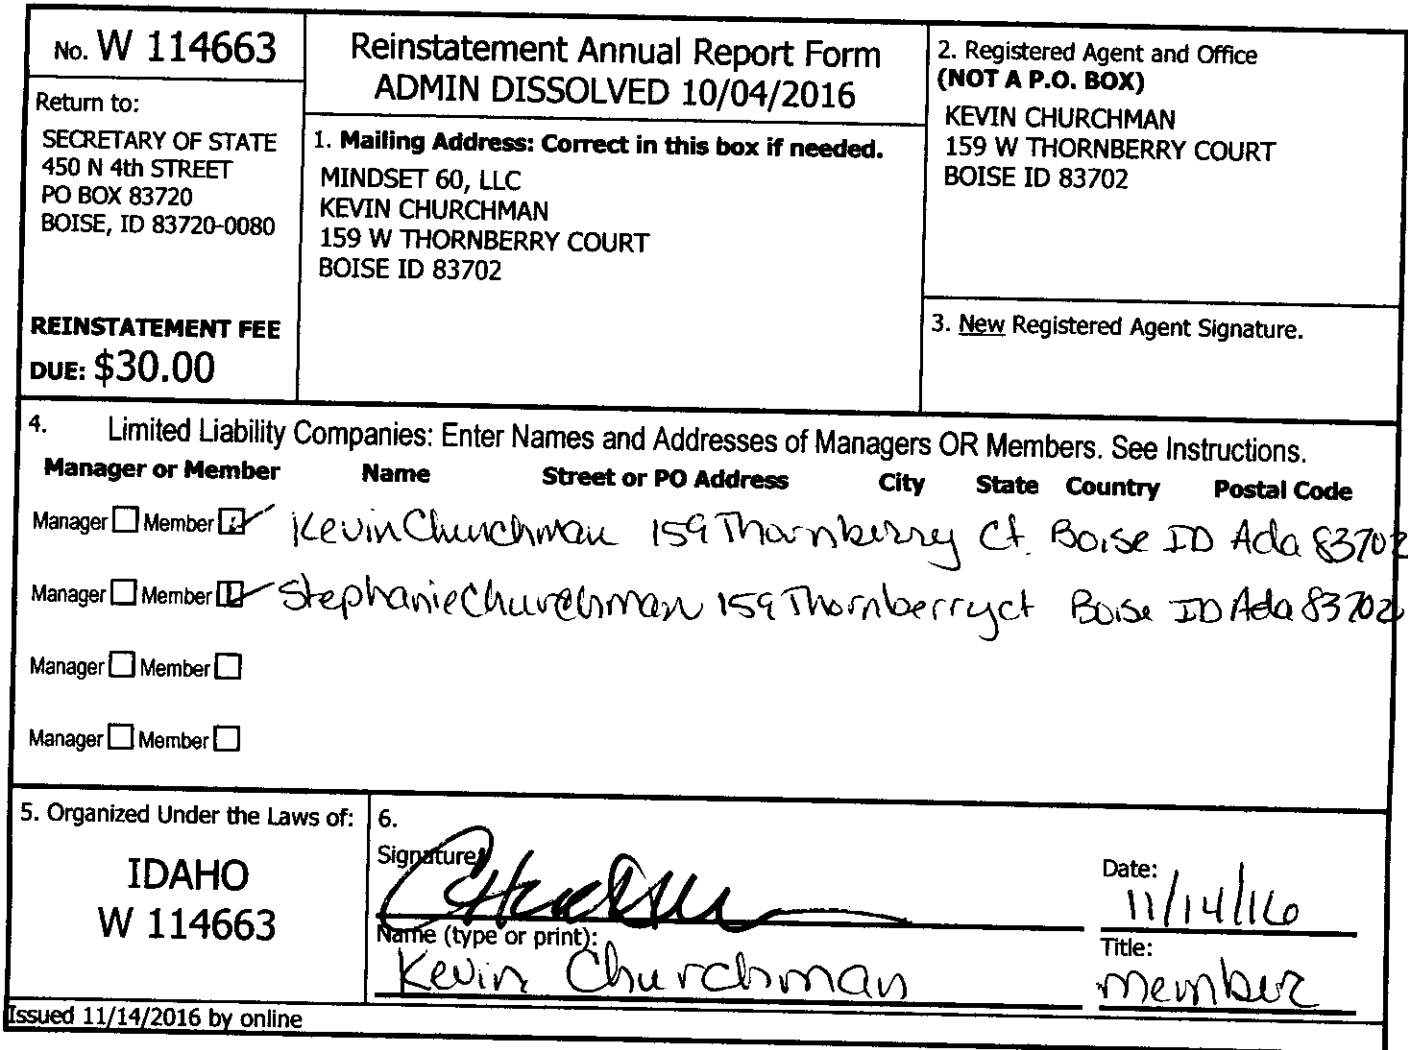 No. W 114663
Return to:
SECRETARY OF STATE
450 N 4th STREET
PO BOX 83720
BOISE, ID 83720-0080
REINSTATEMENT FEE
DUE: $30.00
Reinstatement Annual Report Form
ADMIN DISSOLVED 10/04/2016
1. Mailing Address: Correct in this box if needed.
MINDSET 60, LLC
KEVIN CHURCHMAN
159 W THORNBERRY COURT
BOISE ID 83702
2. Registered Agent and Office
(NOT A P.O. BOX)
KEVIN CHURCHMAN
159 W THORNBERRY COURT
BOISE ID 83702
3. New Registered Agent Signature.
4. Limited Liability Companies: Enter Names and Addresses of Managers OR Members. See Instructions.
Manager or Member Name Street or PO Address City State Country Postal Code
Manager Member Kevin Churchman 159 Thornberry Ct. Boise ID Ada 83702
Manager Member Stephanie Churchman 159 Thornberry ct Boise ID Ada 83702
Manager Member
Manager Member
5. Organized Under the Laws of:
IDAHO
W 114663
6.
Signature:
Date:
11/14/16
Name (type or print):
Kevin Churchman
Title:
member
Issued 11/14/2016 by online